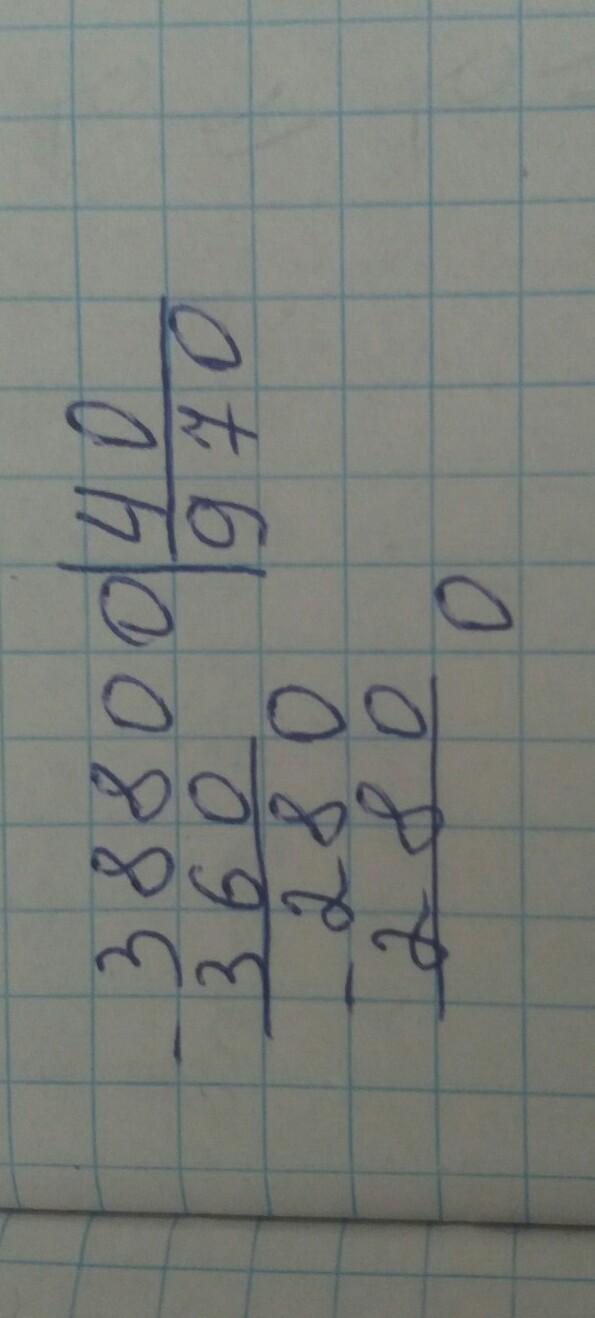 38800 40
-360 970
-280
280
0